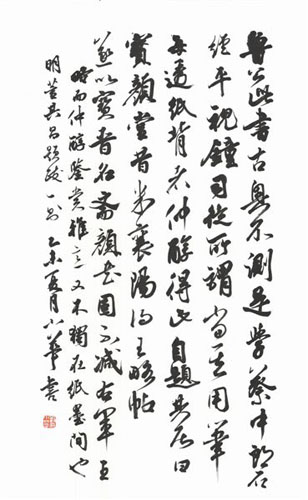 魯公此書古奧不測是學蔡中郎石
經平視鐘司徒所謂當其用筆
每透紙背者仲醇得此自題其居曰
寶顏堂昔米襄陽得王略帖
遂以寶晉名斋顏書固不減右軍王
略而仲醇鑒賞雅意又不獨在紙墨間也
明董其昌題跋一則乙未夏月小華書